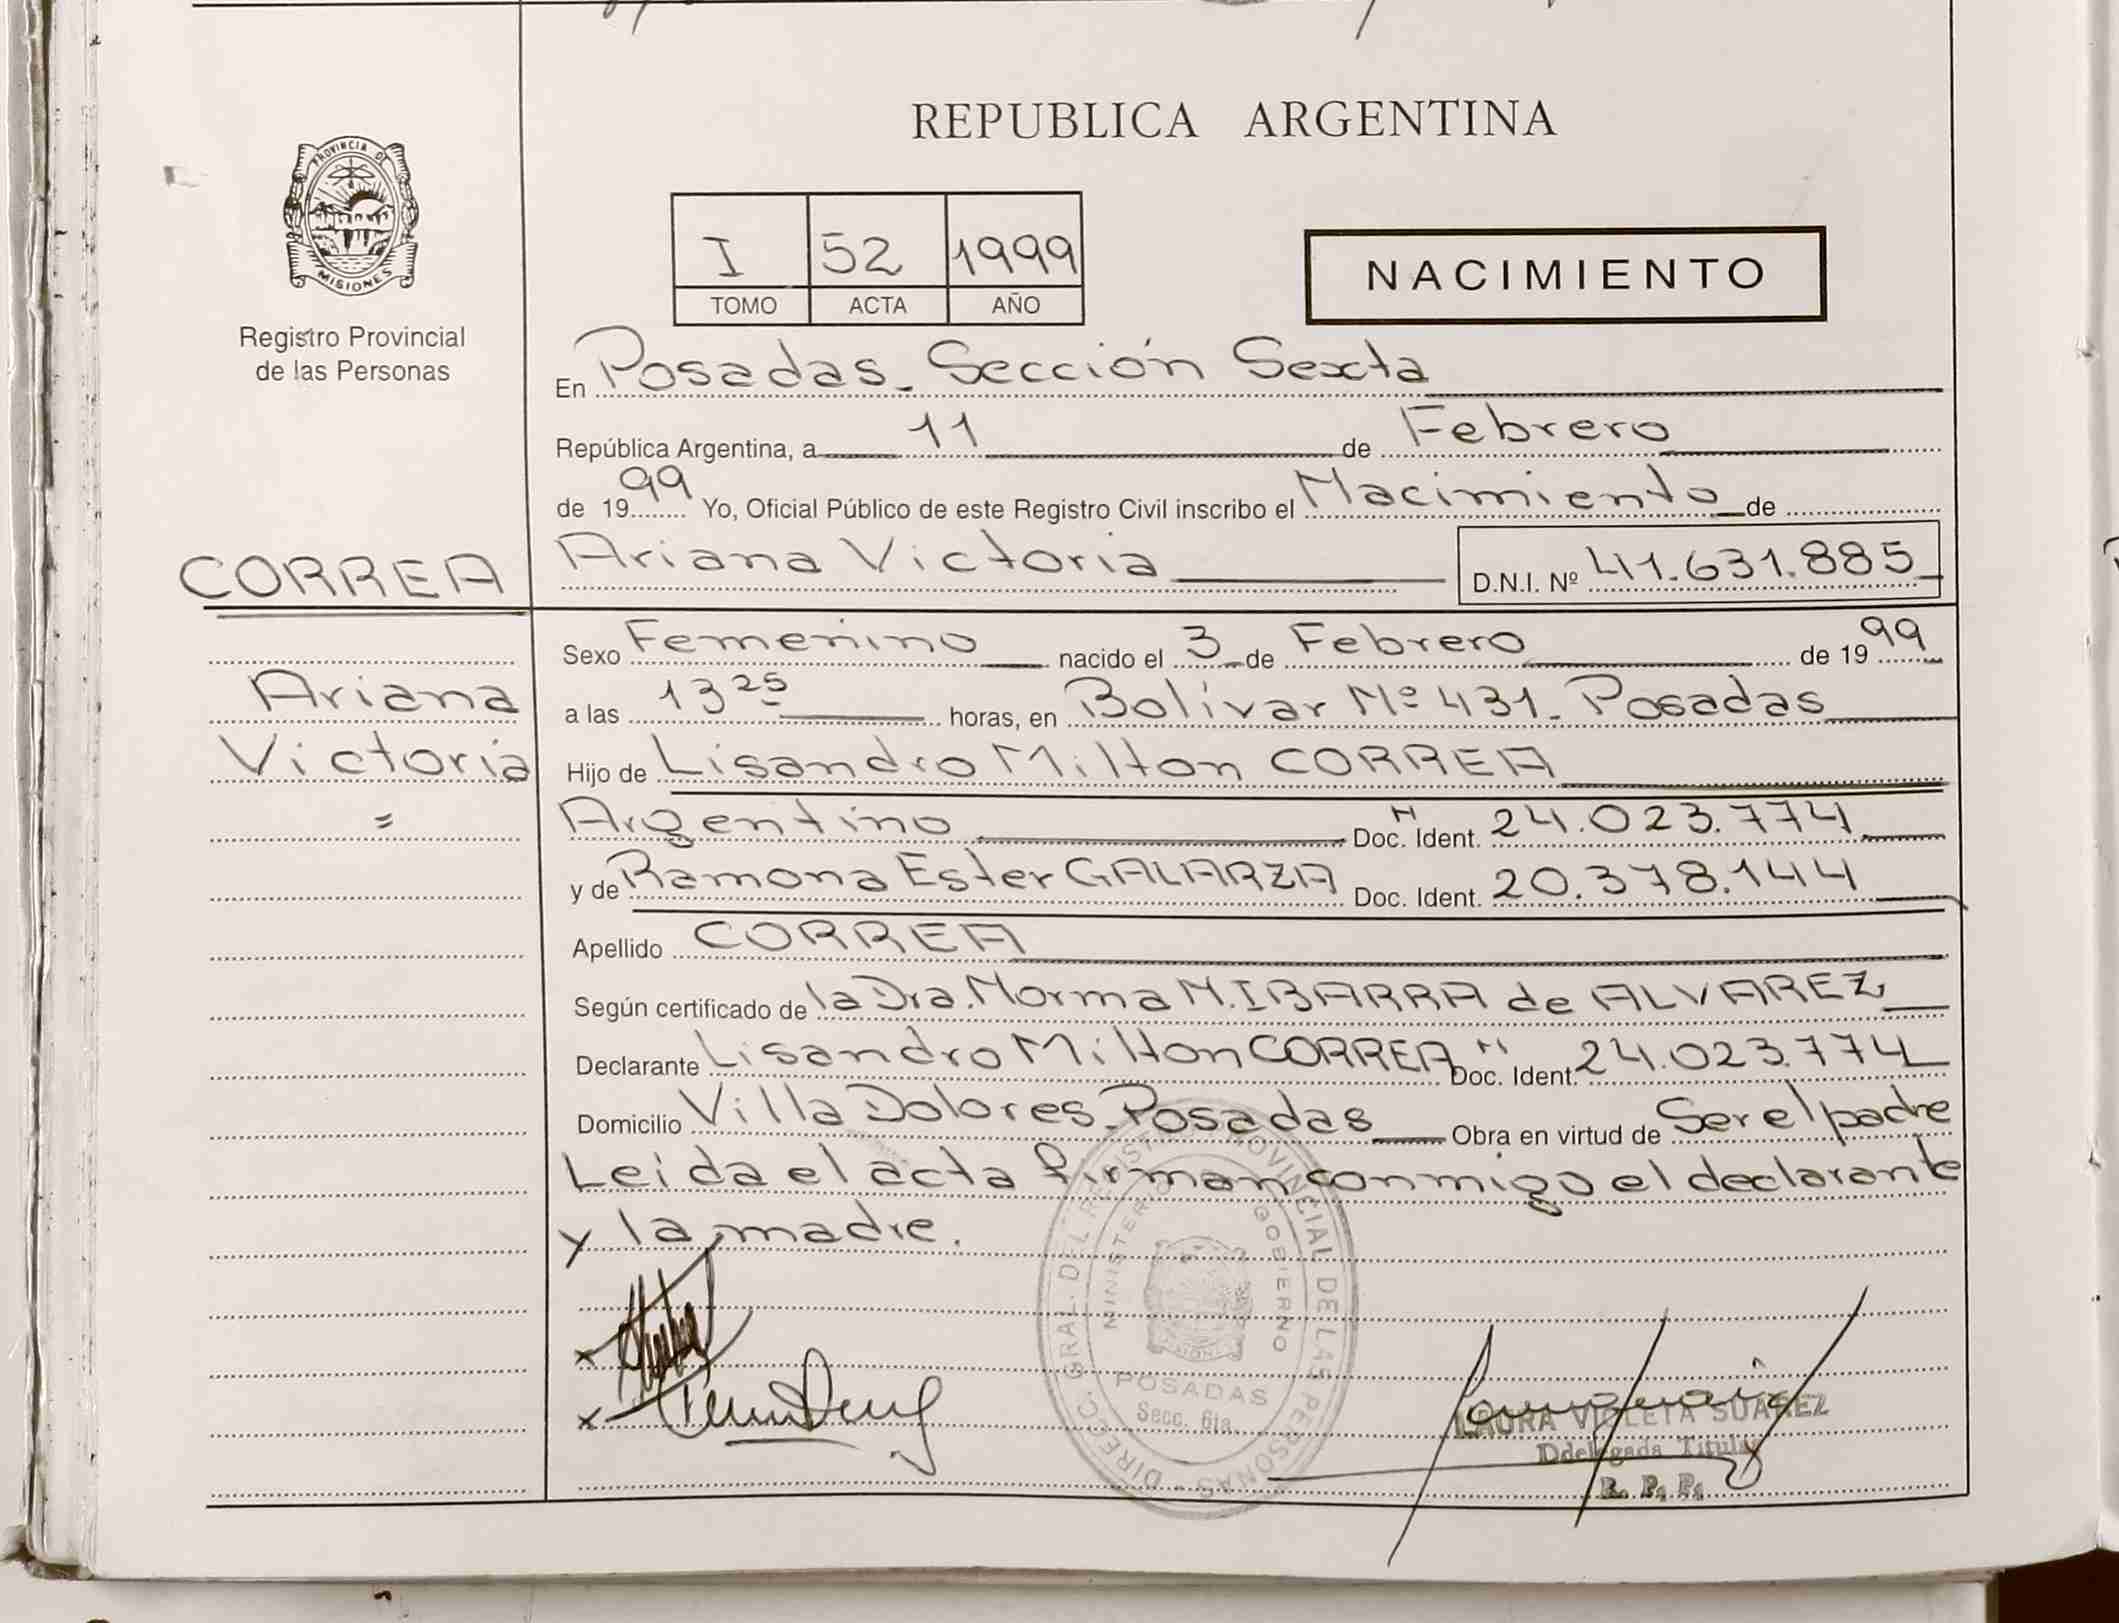 REPUBLICA ARGENTINA
PROVINCIA DE
MISIONES
Registro Provincial
de las Personas
I 52 1999
TOMO ACTA AÑO
NACIMIENTO
En Posadas - Sección Sexta
República Argentina, a 11 de Febrero
de 1999 Yo, Oficial Público de este Registro Civil inscribo el Nacimiento de
CORREA
Ariana Victoria D.N.I. Nº 41.631.885
Ariana
Victoria
=
Sexo Femenino nacido el 3 de Febrero de 1999
a las 13 25 horas, en Bolívar Nº 431 - Posadas
Hijo de Lisandro Milton CORREA
Argentino Doc. N Ident. 24.023.774
y de Ramona Ester GALARZA Doc. Ident. 20.378.144
Apellido CORREA
Según certificado de la Dra. Norma N. IBARRA de ALVAREZ
Declarante Lisandro Milton CORREA N Doc. Ident. 24.023.774
Domicilio Villa Dolores - Posadas Obra en virtud de Ser el padre
Leída el acta firman conmigo el declarante
y la madre.
x
x
DIREC. GRAL. DEL REGISTRO PROVINCIAL DE LAS PERSONAS
MINISTERIO GOBIERNO
MISIONES
POSADAS
Secc. 6ta.
LAURA VIOLETA SUAREZ
Ddelegada Titular
R. P. P.